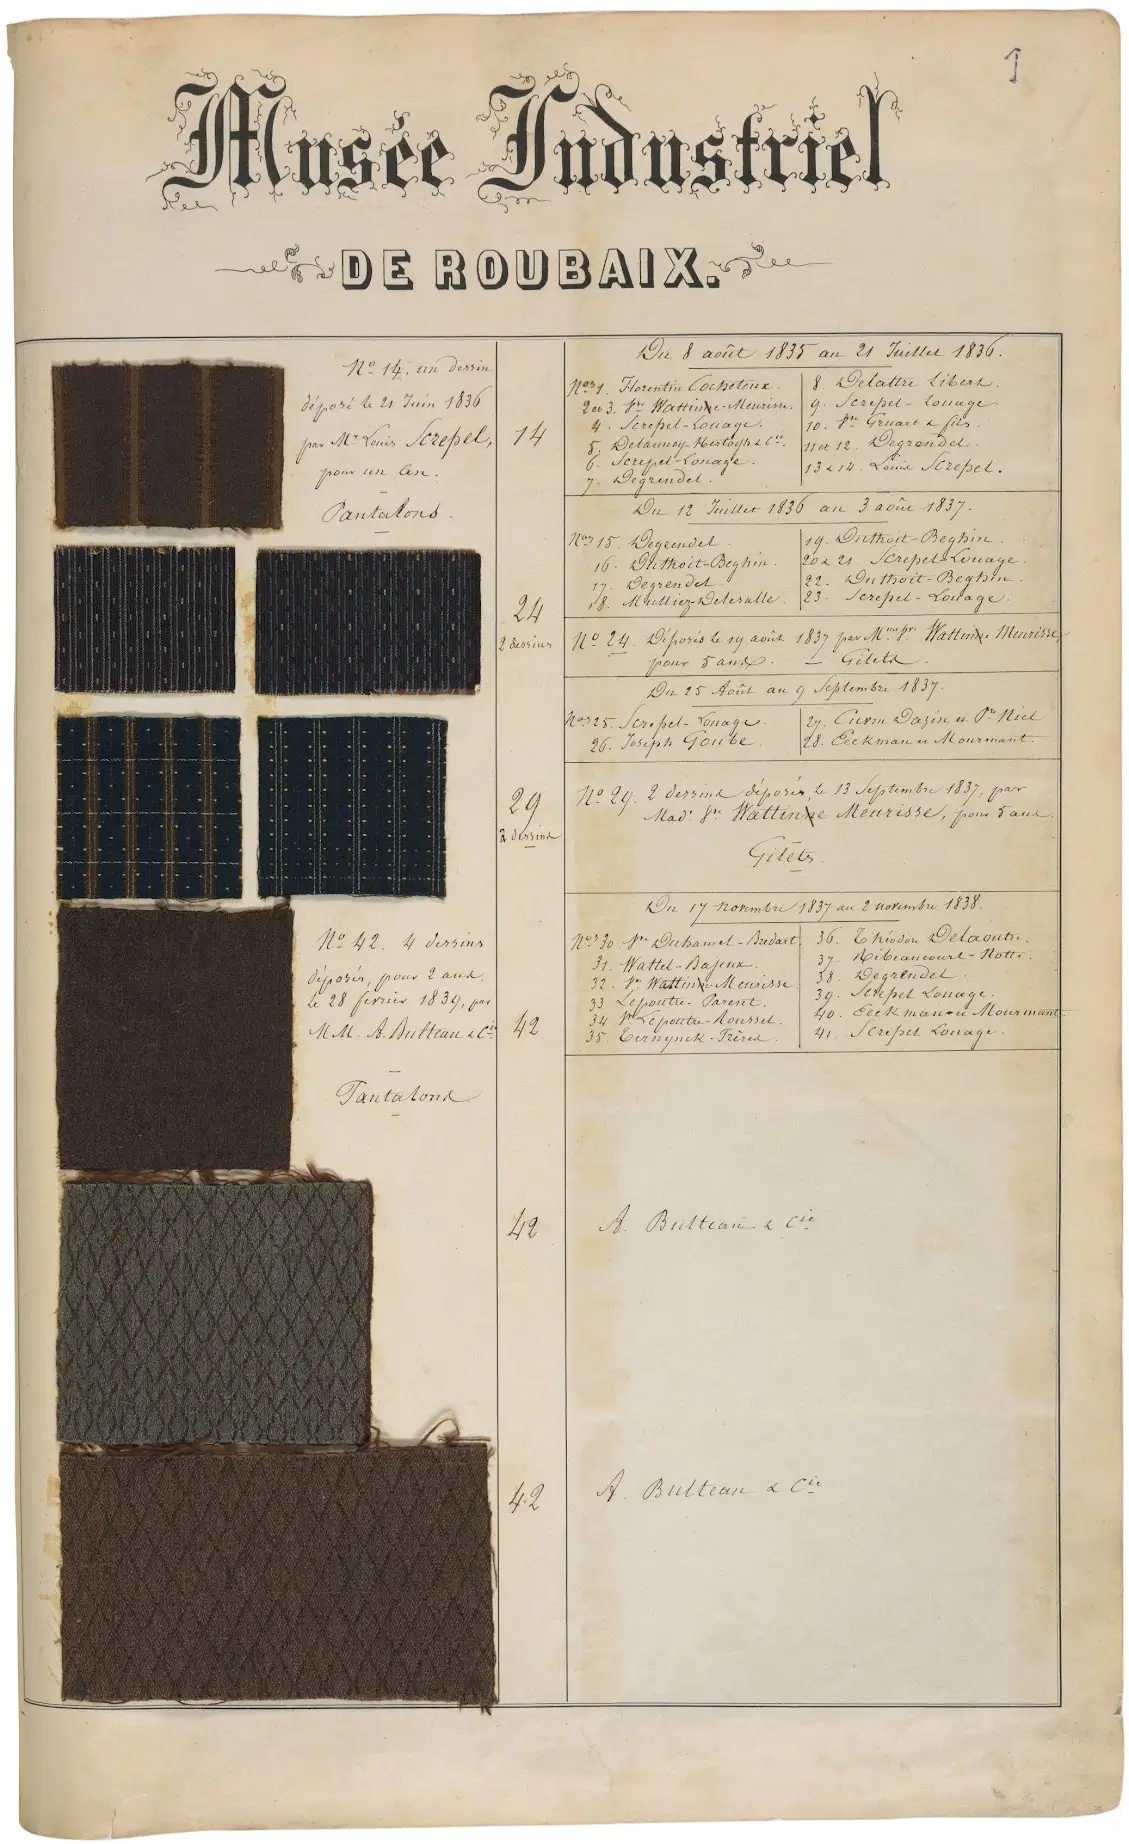 1
Musée Industriel
DE ROUBAIX.
Nº 14. un dessin
déposé le 21 Juin 1836
par Mr Louis Screpel,
pour un an.
Pantalons.
14
24
2 dessins
29
2 dessins
Nº 42. 4 dessins
déposés, pour 2 ans
le 28 février 1839, par
MM. A. Bulteau & Cie
Pantalons
42
42
42
Du 8 août 1835 au 21 Juillet 1836.
Nos 1. Florentin Cocheteux.
2 et 3. Vve Wattinne-Meurisse.
4. Screpel-Louage.
5. Delaunoy-Hertogh & Cie
6. Screpel-Louage.
7. Degrendel.
8. Delattre Libert.
9. Screpel-Louage
10. Vve Gruart & fils.
11 et 12. Degrendel.
13 & 14. Louis Screpel.
Du 12 Juillet 1836 au 3 août 1837.
Nos 15. Degrendel
16. Duthoit-Beghin.
17. Degrendel.
18. Mulliez-Delesalle.
19. Duthoit-Beghin.
20 & 21 Screpel-Louage.
22. Duthoit-Beghin.
23. Screpel-Louage.
Nº 24. Déposés le 19 août 1837 par Mme Vve Wattinne Meurisse,
pour 5 ans. — Gilets.
Du 25 Août au 9 Septembre 1837.
Nos 25. Screpel-Louage.
26. Joseph Goube.
27. Cuvru Dazin et Pre Riel
28. Eeckman et Mourmant.
Nº 29. 2 dessins déposés, le 13 Septembre 1837, par
Made Vve Wattinne Meurisse, pour 5 ans.
Gilets.
Du 17 novembre 1837 au 2 novembre 1838.
Nos 30. Vve Duhamel-Bredart.
31. Wattel-Bajeux.
32. Vve Wattinne-Meurisse
33 Lepoutre-Parent.
34 Vve Lepoutre-Roussel.
35 Ternynck-Frères.
36. Théodore Delaoutre.
37. Ribeaucourt-Motte.
38. Degrendel.
39. Screpel Louage.
40. Eeckman et Mourmant.
41. Screpel Louage.
A. Bulteau & Cie
A. Bulteau & Cie